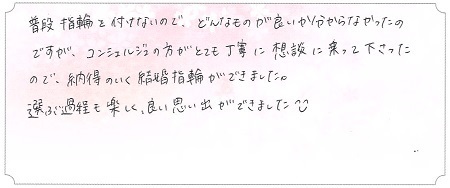 普段指輪を付けないので、どんなものが良いか分からなかったの
ですが、コンシェルジュの方がとても丁寧に想談に乗って下さった
ので、納得のいく結婚指輪ができました。
選ぶ過程も楽しく、良い思い出ができました